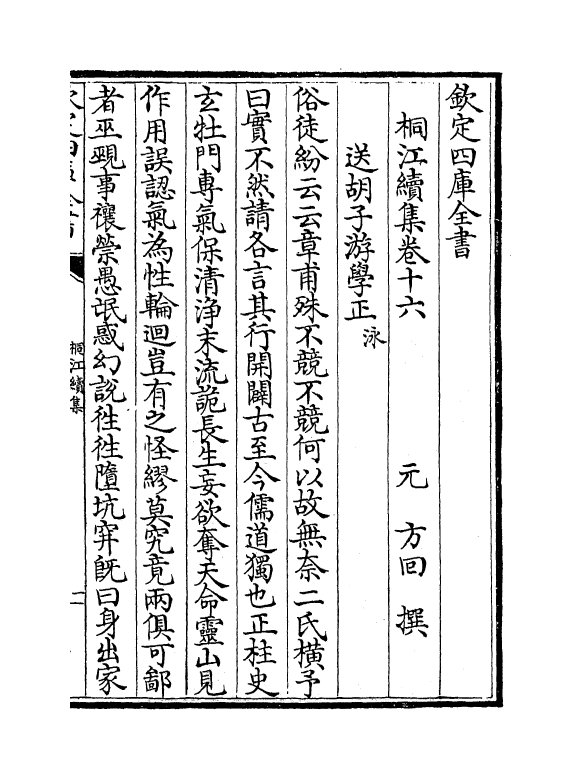 欽定四庫全書
桐江續集卷十六
元 方回 撰
送胡子游學正 泳
俗徒紛云云章甫殊不競不競何以故無奈二氏橫予
曰實不然請各言其行開闢古至今儒道獨也正柱史
玄牡門專氣保清浄末流詭長生妄欲奪天命靈山見
作用誤認氣為性輪迴豈有之怪繆莫究竟兩俱可鄙
者巫覡事禳禜愚氓惑幻說徃徃墮坑穽旣曰身出家
桐江續集